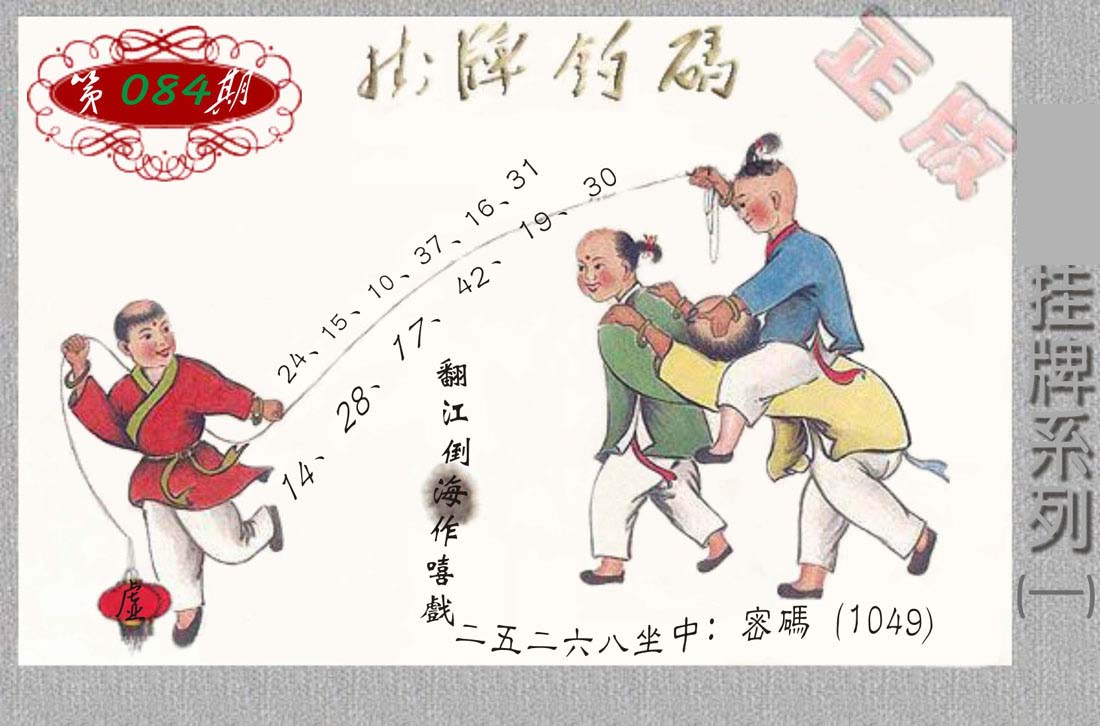 第084期
掛牌釣碼
正版
24、15、10、37、16、31
14、28、17、42、19、30
翻江倒海作嘻戲
虛
二五二六八坐中：密碼（1049）
挂牌系列(一)